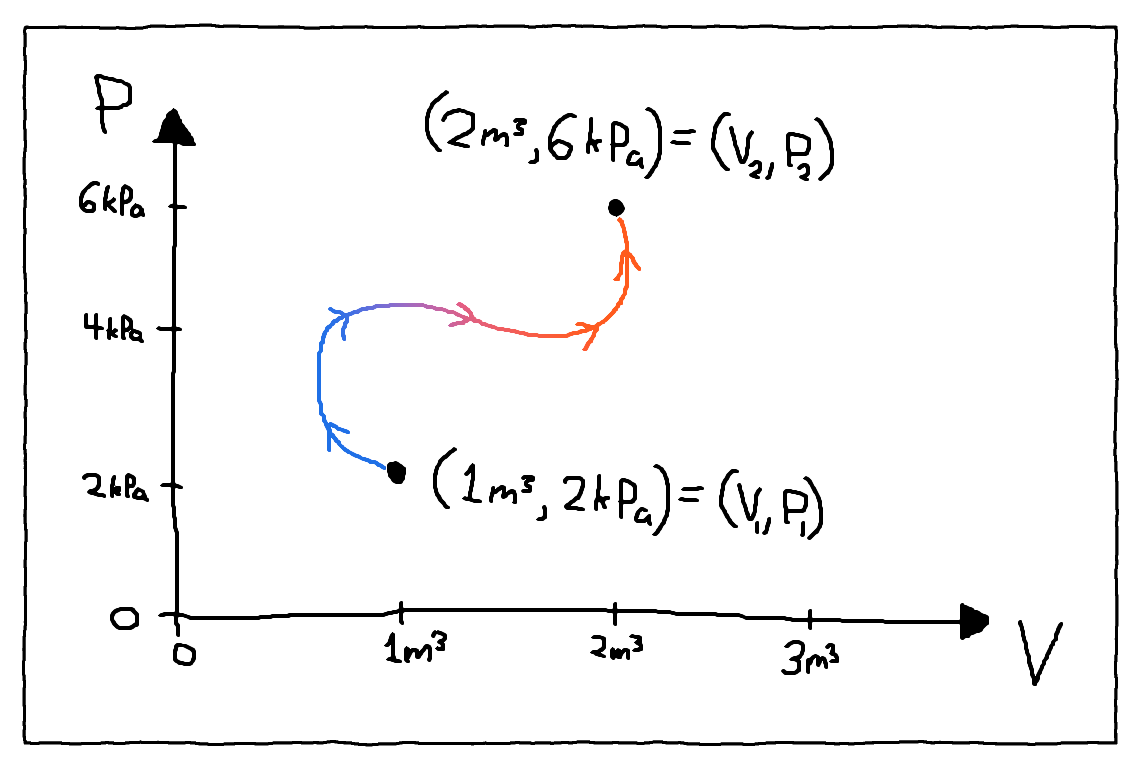 P
(2m³, 6kPa) = (V₂, P₂)
6kPa
4kPa
2kPa
(1m³, 2kPa) = (V₁, P₁)
0
0
1m³
2m³
3m³
V